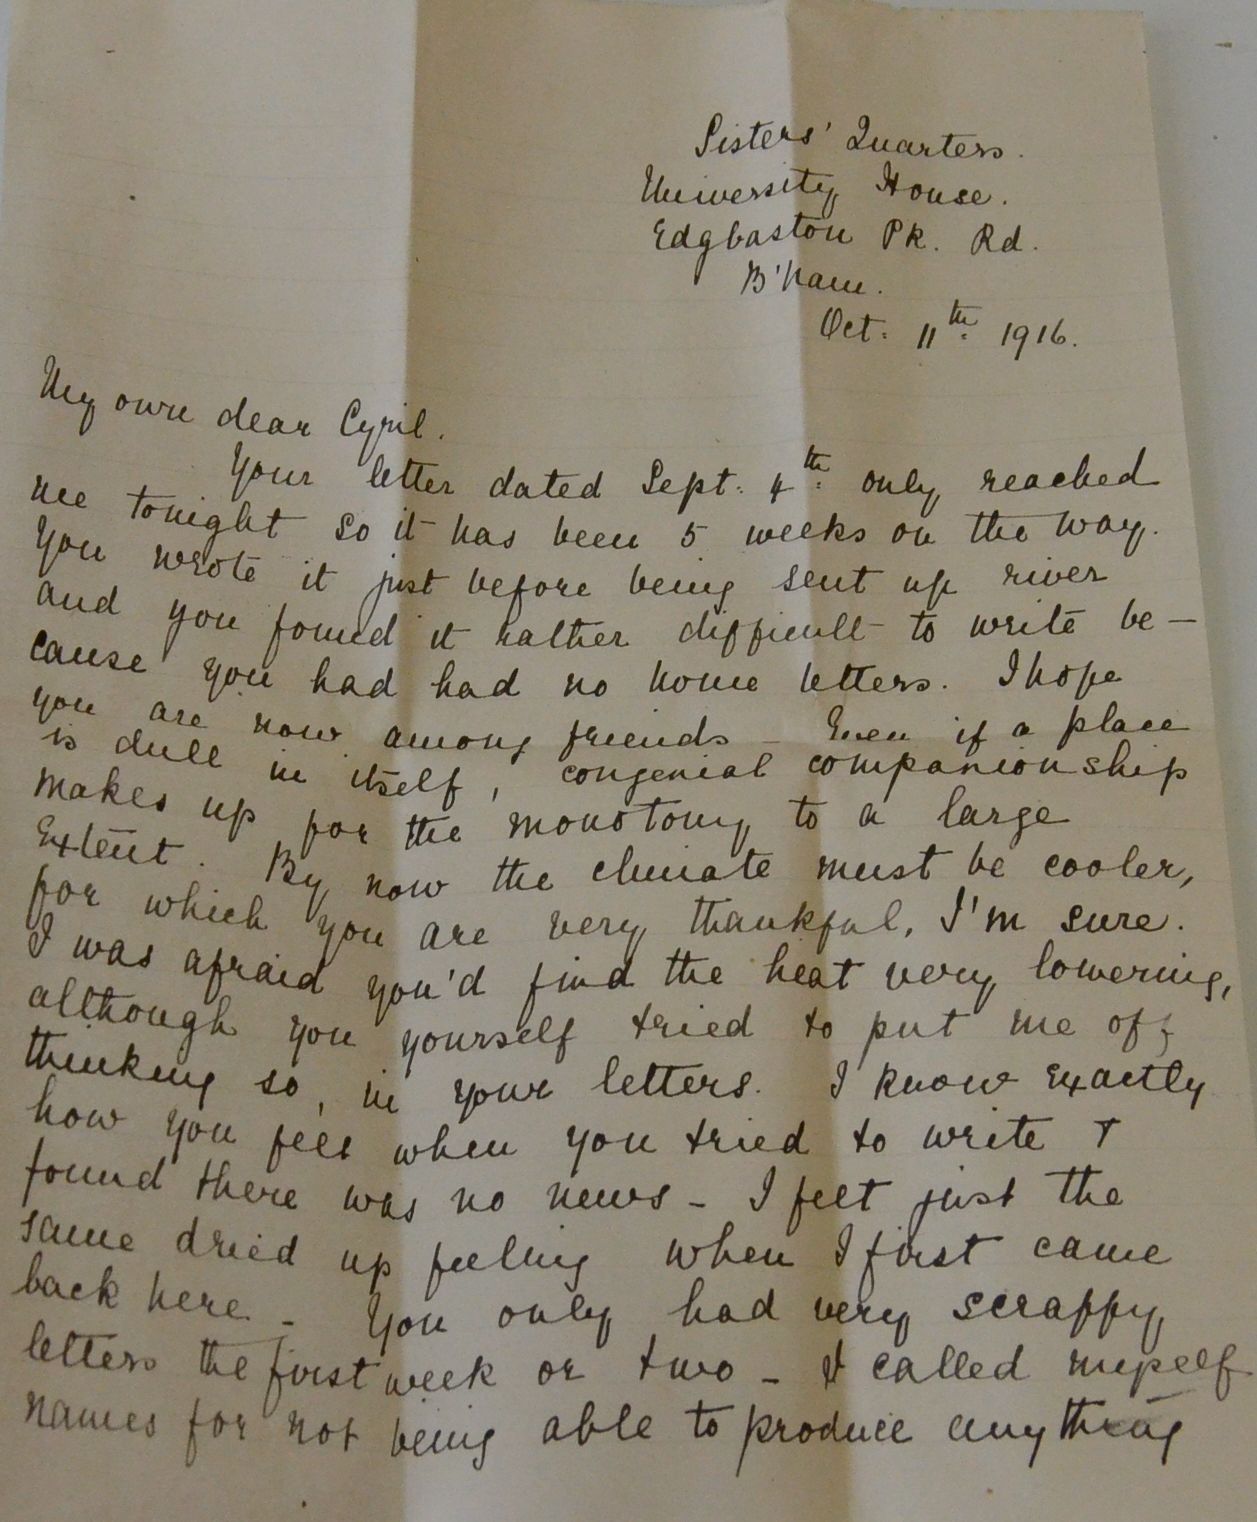 Sisters' Quarters.
University House.
Edgbaston Pk. Rd.
B'ham.
Oct. 11th. 1916.
My own dear Cyril.
Your letter dated Sept. 4th. only reached
me tonight so it has been 5 weeks on the way.
You wrote it just before being sent up river
and you found it rather difficult to write be-
cause you had had no home letters. I hope
you are now among friends - Even if a place
is dull in itself, congenial companionship
makes up for the monotony to a large
Extent. By now the climate must be cooler,
for which you are very thankful, I'm sure.
I was afraid you'd find the heat very lowering,
although you yourself tried to put me off
thinking so, in your letters. I know Exactly
how you feel when you tried to write +
found there was no news - I felt just the
same dried up feeling when I first came
back here - You only had very scrappy
letters the first week or two - I called myself
names for not being able to produce anything